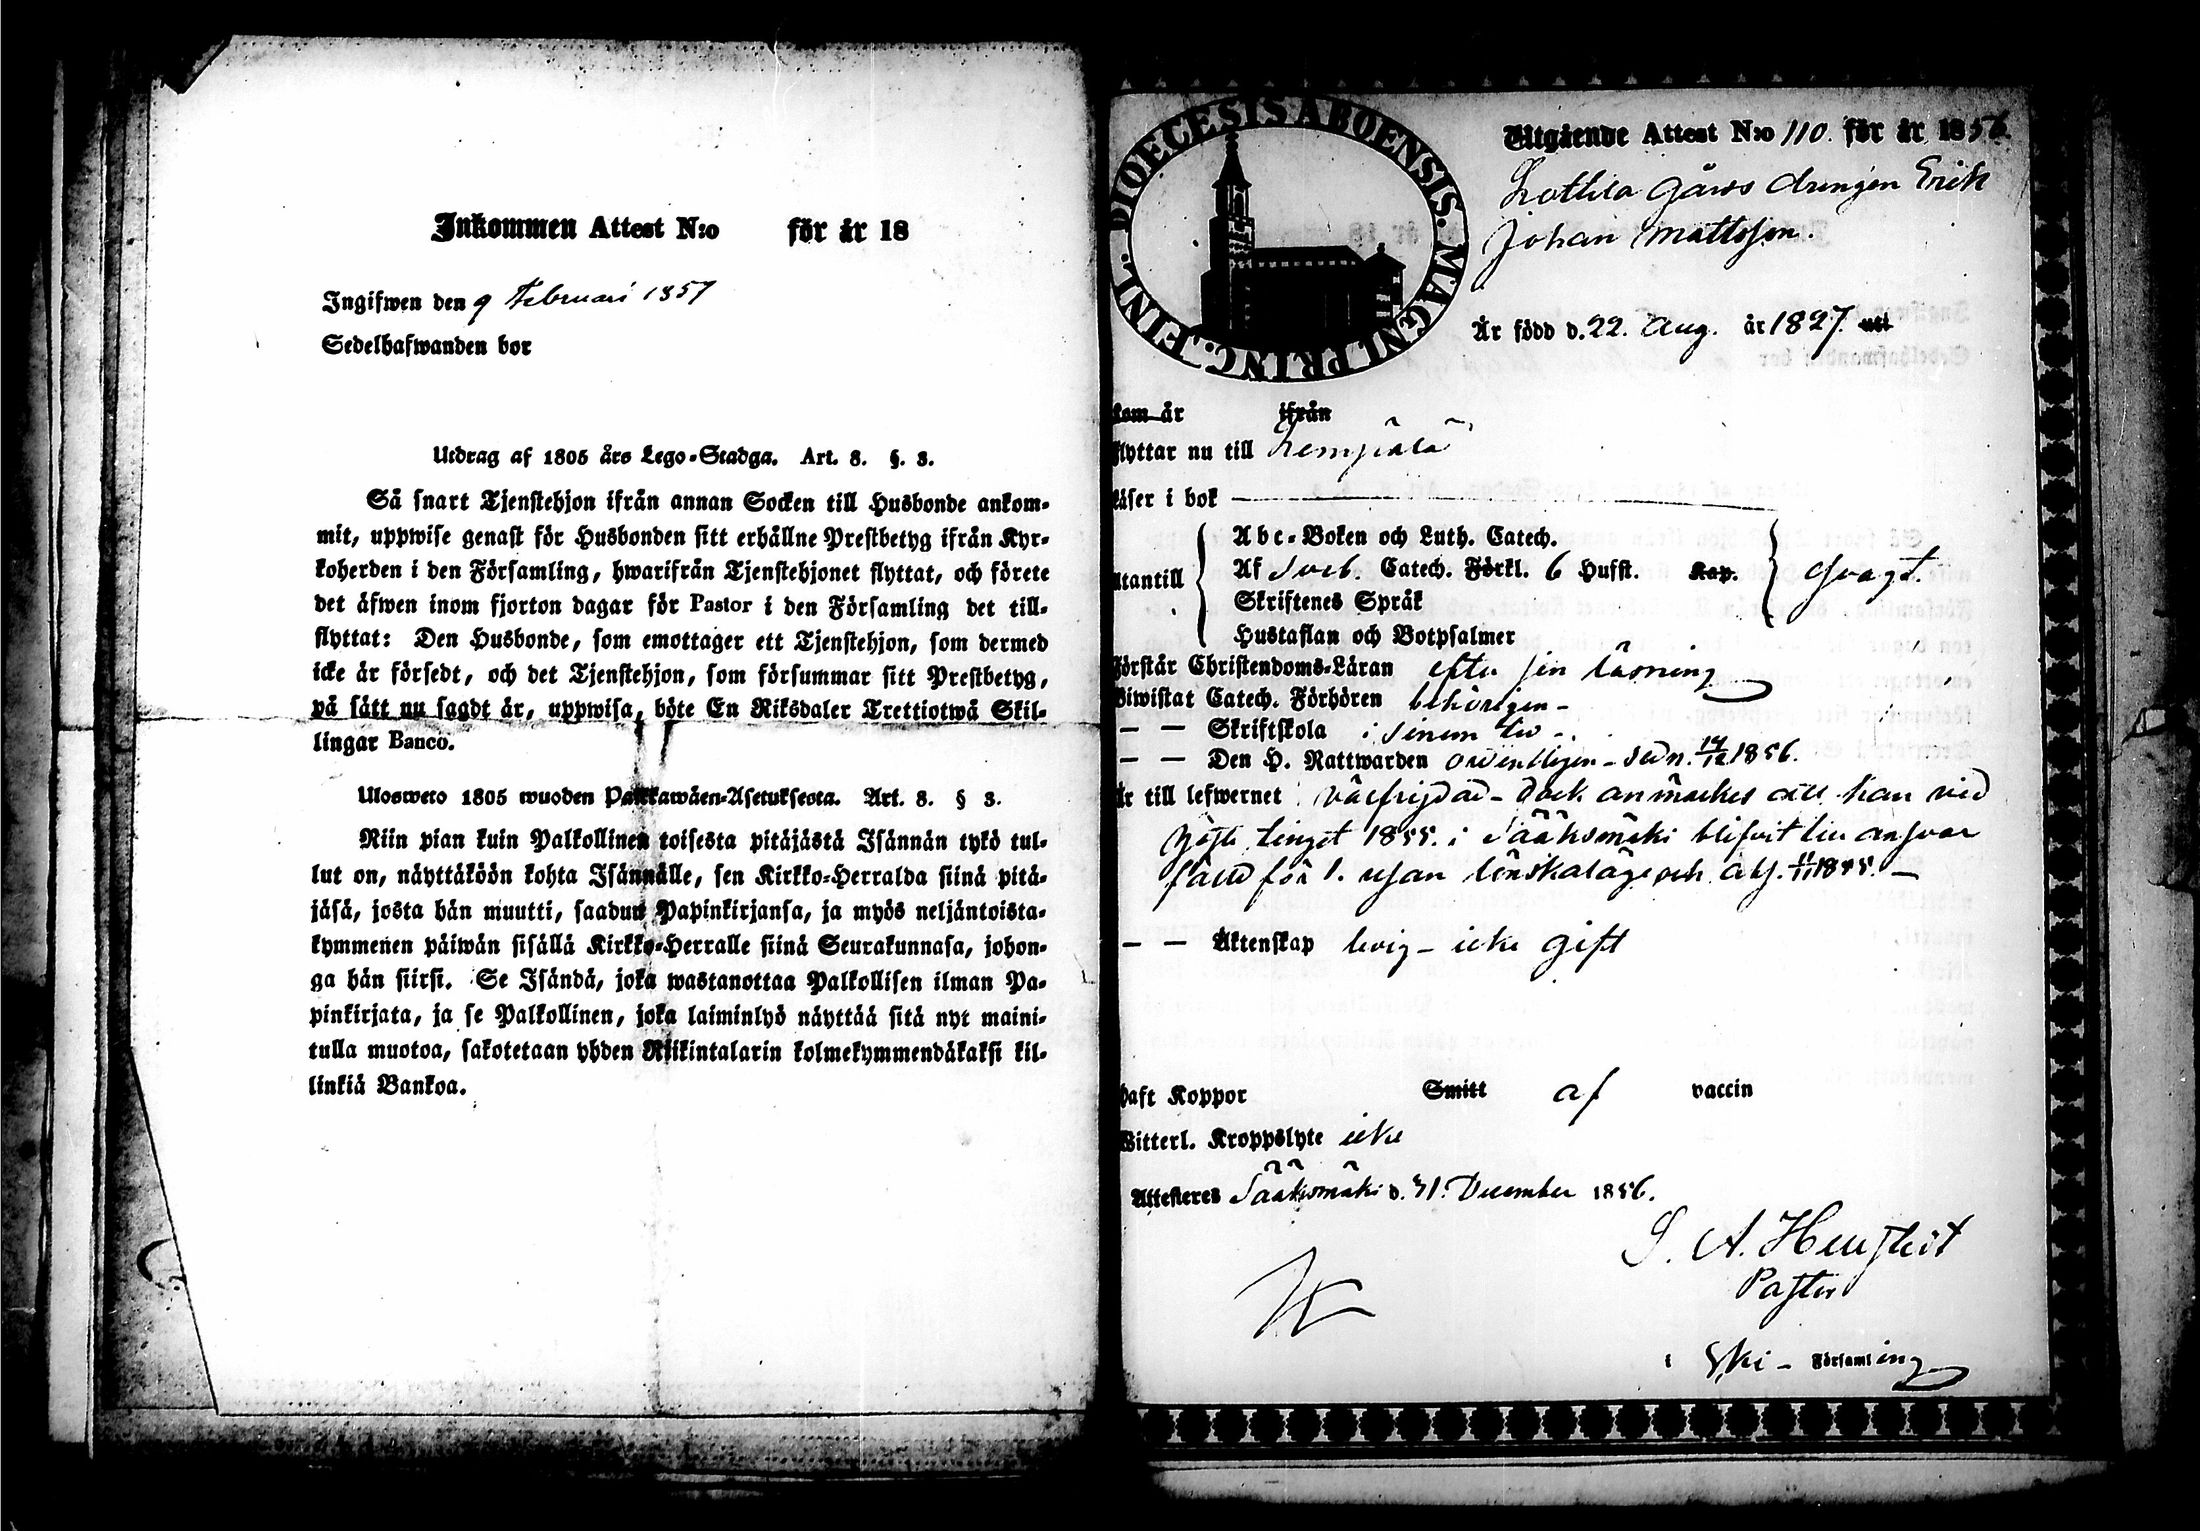 Inkommen Attest N:o för år 18
Ingifwen den 9 Februari 1857
Sedelhafwanden bor
Utdrag af 1805 års Lego-Stadga. Art. 8. §. 3.
Så snart Tjenstehjon ifrån annan Socken till Husbonde ankom-
mit, uppwise genast för Husbonden sitt erhållne Prestbetyg ifrån Kyr-
koherden i den Församling, hwarifrån Tjenstehjonet flyttat, och förete
det äfwen inom fjorton dagar för Pastor i den Församling det till-
flyttat: Den Husbonde, som emottager ett Tjenstehjon, som dermed
icke är försedt, och det Tjenstehjon, som försummar sitt Prestbetyg,
på sätt nu sagdt är, uppwisa, böte En Riksdaler Trettiotwå Skil-
lingar Banco.
Ulosweto 1805 wuoden Palkkawäen-Asetuksesta. Art. 8. § 3.
Niin pian kuin Palkollinen toisesta pitäjästä Isännän tykö tul-
lut on, näyttäköön kohta Isännälle, sen Kirkko-Herralda siinä pitä-
jäsä, josta hän muutti, saadun Papinkirjansa, ja myös neljäntoista-
kymmenen päiwän sisällä Kirkko-Herralle siinä Seurakunnasa, johon-
ga hän siirsi. Se Isändä, joka wastanottaa Palkollisen ilman Pa-
pinkirjata, ja se Palkollinen, joka laiminlyö näyttää sitä nyt maini-
tulla muotoa, sakotetaan yhden Riikintalarin kolmekymmendäkaksi kil-
linkiä Bankoa.
DIOECESIS ABOENSIS. MAGNI PRINC. FINL.
Utgående Attest N:o 110. för år 1856.
gårds drengen Erik
Johan Mattsson.
Är född d. 22. Aug. år 1827. uti
kom år ifrån
flyttar nu till Lempälä
läser i bok
Abc-Boken och Luth. Catech.
Utantill Af Sveb. Catech. Förkl. 6 Hufst. Kap. svagt.
Skriftenes Språk
Hustaflan och Botpsalmer
Förstår Christendoms-Läran efter sin läsning
Biwistat Catech. Förhören behörigen -
— — Skriftskola i sinom tid -.
— — Den H. Nattwarden ordentligen - sedn. 1856.
Är till lefwernet väfrejdad - dock anmärkes att han vid
Höste tinget 1855. i Sääksmäki blifvit till ansvar
fäld för 1. resan lönskaläge och abs. 11/11 1855. —
— — Äktenskap ledig - icke gift
haft Koppor Smitt af vaccin
Witterl. Kroppslyte icke
Attesteres Sääksmäki d. 31. December 1856.
Pastor
i Ski - Församling